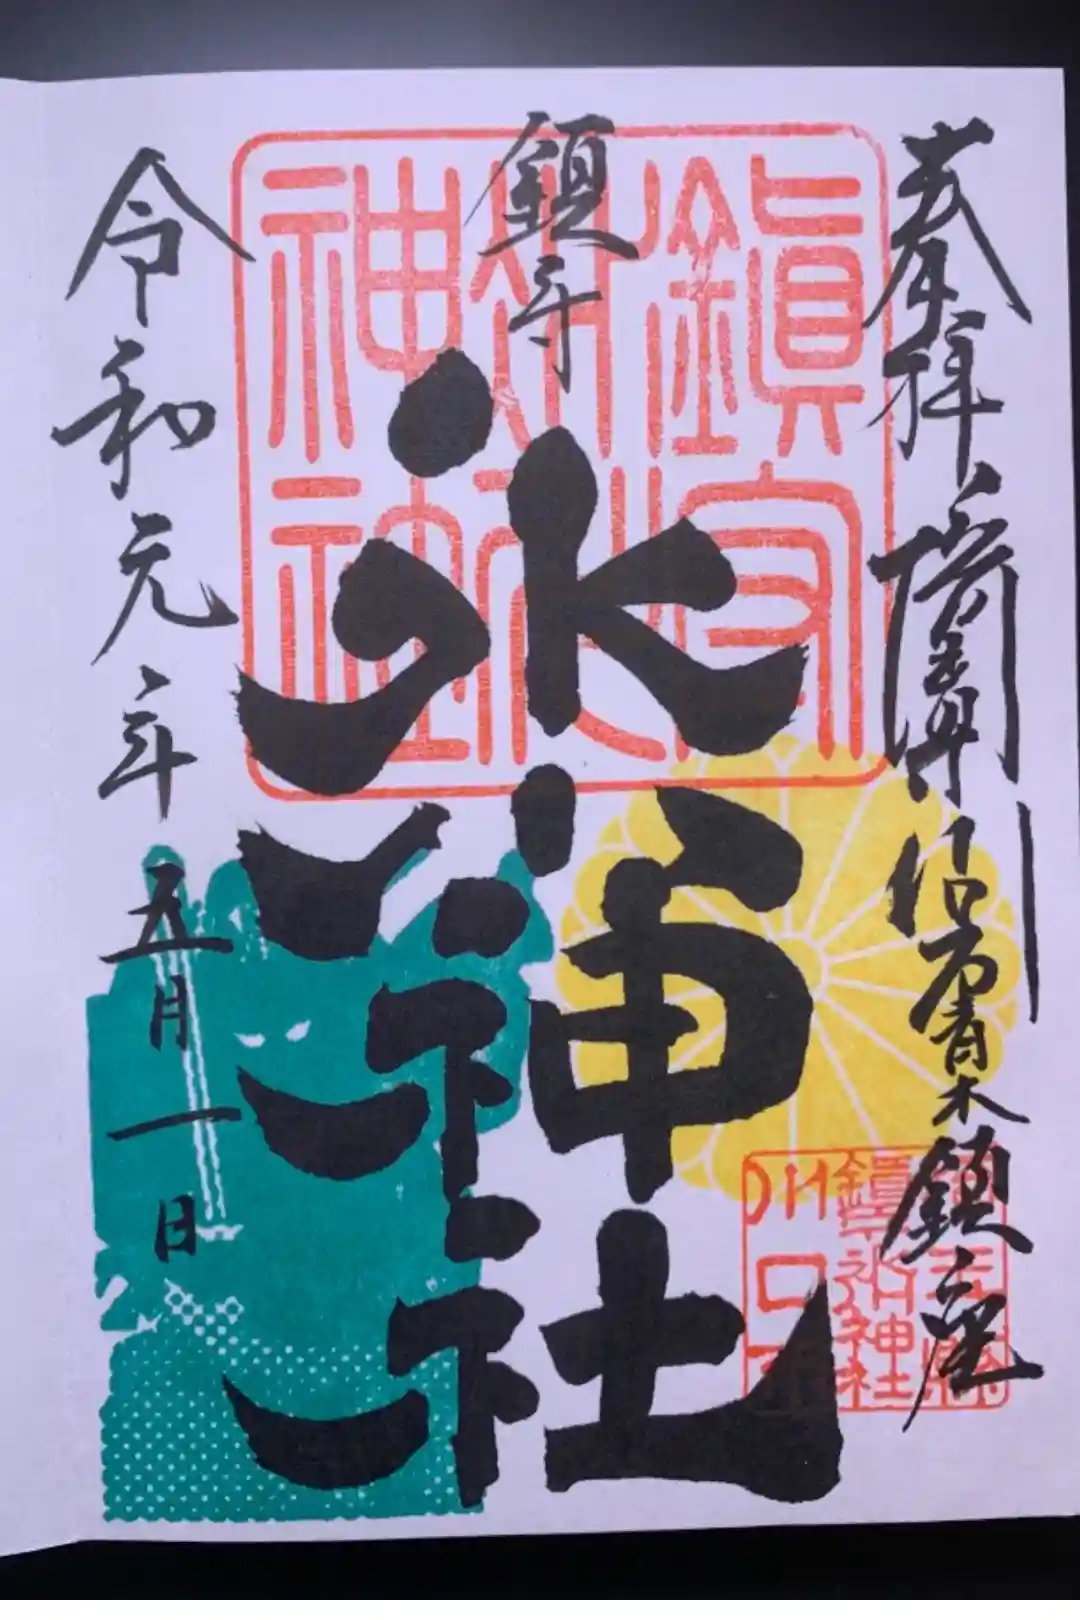 奉拝
青木鎮座
鎮守
氷川神社
令和元年五月一日
鎮守
氷川
神社
埼玉縣
鎮守氷川神社
川口市